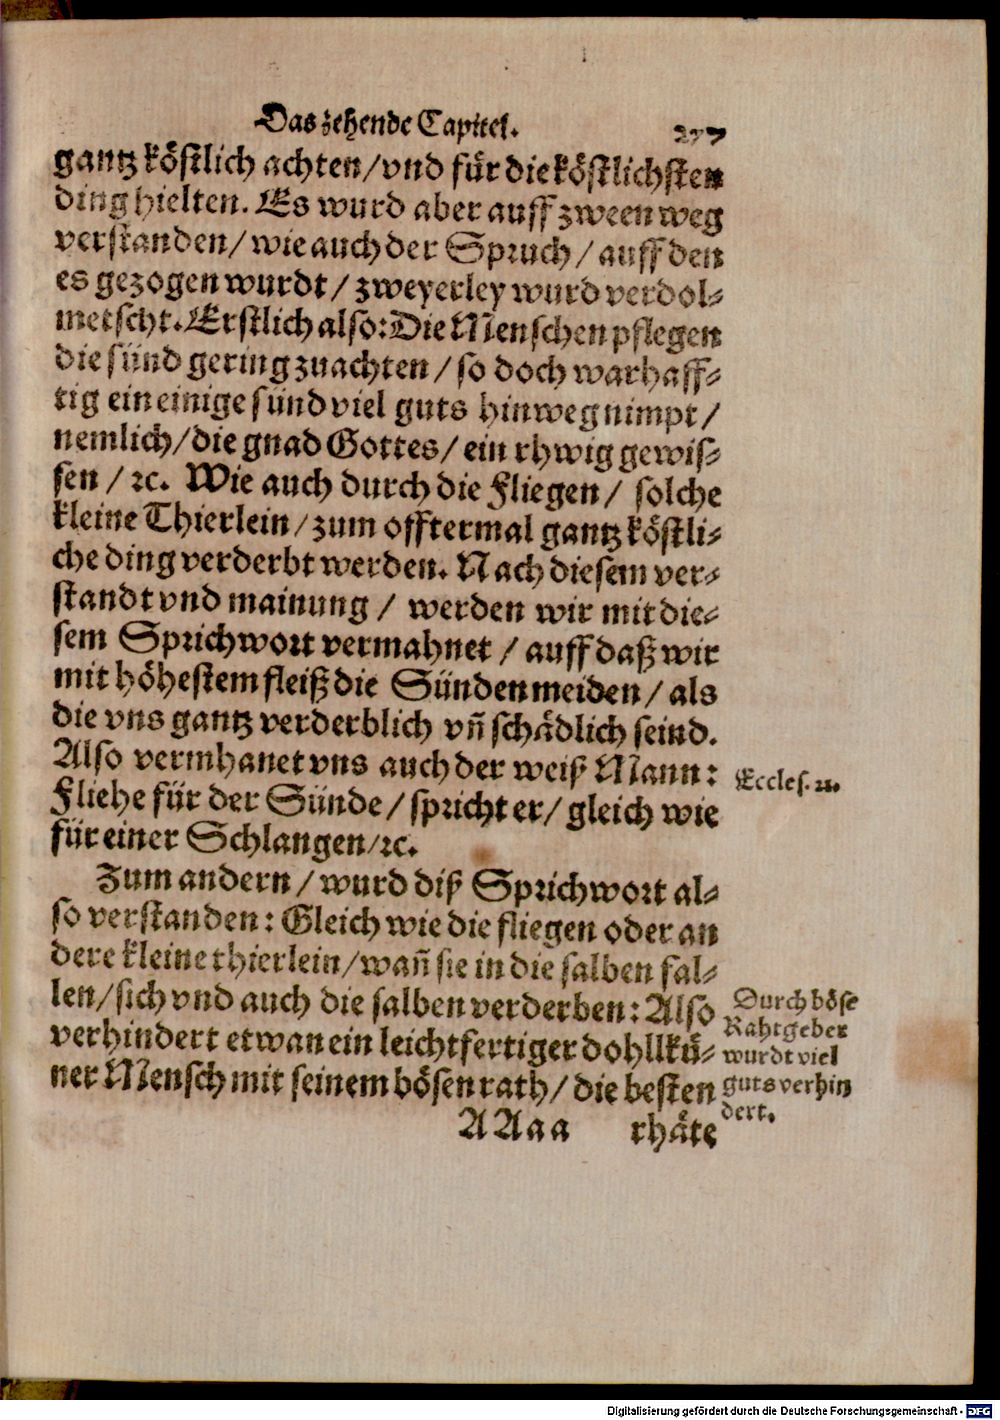 Das zehende Capitel. 277
gantz köstlich achten/vnd für die köstlichsten
ding hielten. Es wurd aber auff zween weg
verstanden/wie auch der Spruch/auff den
es gezogen wurdt/zweyerley wurd verdol-
metscht. Erstlich also: Die Menschen pflegen
die sünd gering zuachten/so doch warhaff-
tig ein einige sünd viel guts hinweg nimpt/
nemlich/die gnad Gottes/ein rhwig gewis-
sen/ꝛc. Wie auch durch die Fliegen/solche
kleine Thierlein/zum offtermal gantz köstli-
che ding verderbt werden. Nach diesem ver-
standt vnd mainung/werden wir mit die-
sem Sprichwort vermahnet/auff daß wir
mit höhestem fleiß die Sünden meiden/als
die vns gantz verderblich vñ schädlich seind.
Also vermhanet vns auch der weiß Mann:
Eccles. 21.
Fliehe für der Sünde/spricht er/gleich wie
für einer Schlangen/ꝛc.
Zum andern/wurd diß Sprichwort al-
so verstanden: Gleich wie die fliegen oder an
dere kleine thierlein/wañ sie in die salben fal-
len/sich vnd auch die salben verderben: Also
verhindert etwan ein leichtfertiger dohllkü-
ner Mensch mit seinem bösen rath/die besten
Durch böse
Rahtgeber
wurdt viel
guts verhin
dert.
AAaa rhäte
Digitalisierung gefördert durch die Deutsche Forschungsgemeinschaft - DFG